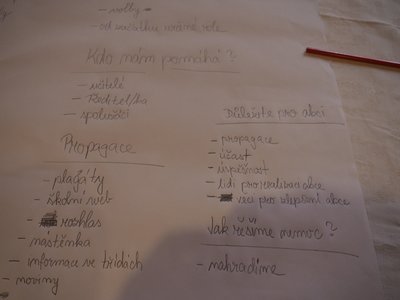 - volby
- od začátku určené role
Kdo nám pomáhá?
- učitelé
- Ředitel/ka
- spolužáci
Propagace
- plagáty
- školní web
- rozhlas
- nástěnka
- informace ve třídách
- noviny
Důležité pro akci
- propagace
- účast
- úspěšnost
- lidi pro realizaci akce
- věci pro vylepšení akce
Jak řešíme nemoc?
- nahradíme